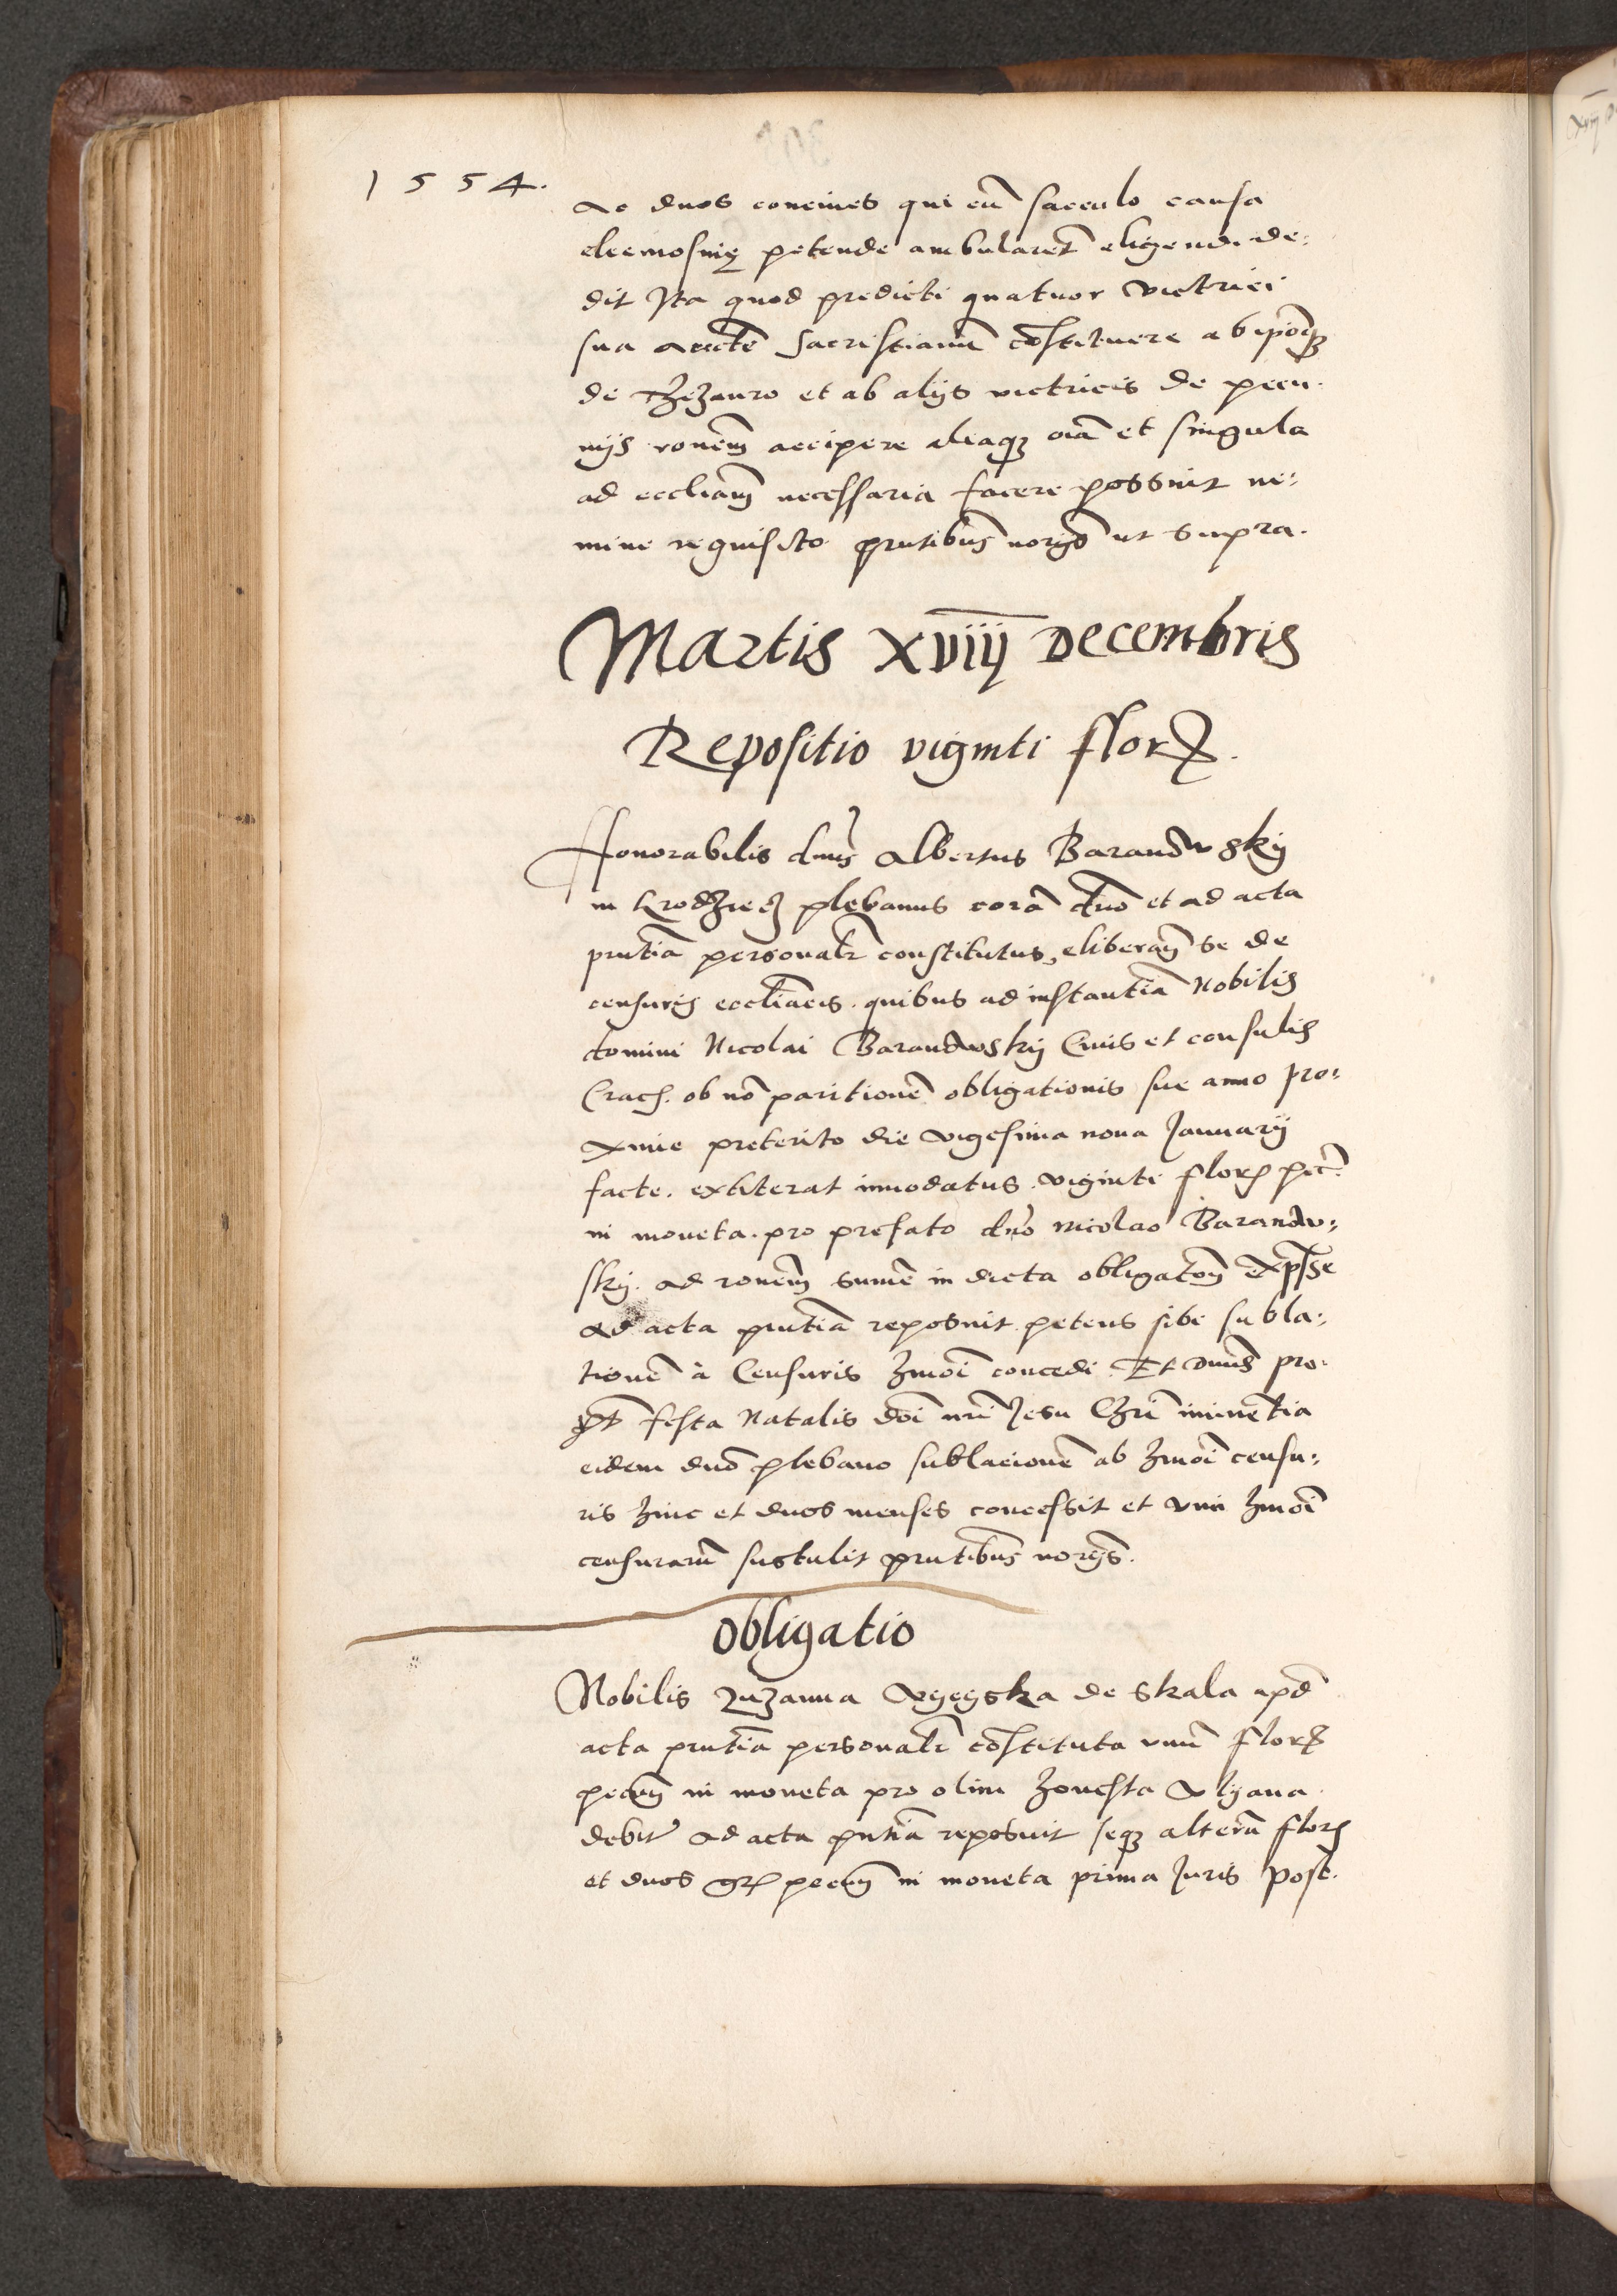 1554.
ac duos conciues qui cũ sacculo causa
eleemosinę petende ambularẽt eligendi de:
dit Ita quod predicti quatuor victrici
sua auctẽ Sacristianũ cõstituere ab ipõq3
de thezauro et ab alijs victricis de pecu.
nijs ronẽm accipere aliaq3 oĩa et singula
ad eccliam necessaria facere possint ne:
mine requisito pntibus norijs ut supra.
Martis XVIII Decembris
Repositio viginti flor.
Honorabilis dnus Albertus Barandwskij
in plebanus corã dno et ad acta
pntia personalr constitutus, eliberan se de
censuris eccliacis. quibus ad instantiã Nobilis
domini Nicolai Barandwskij Ciuis et consulis
Crac. ob nõ paritionẽ obligationis sue anno pro:
xime preterito die vigesima nona Januarij
facte. extiterat innodatus. viginti flor pec.
in moneta. pro prefato dño Nicolao Barandw:
skij. ad ronẽm sume in dicta obligatõn exp̃sse
ad acta pntiã reposuit petens sibi subla:
tionẽ à Censuris hmõi concedi. Et dnus pro:
pt festa Natalis dõi nri Jesu Chri iminẽtia
eidem dnõ plebano sublacionẽ ab hmõi censu:
ris hinc et duos menses concessit et vim hmõi
censurarũ sustulit pntibus norijs.
obligatio
Nobilis Zuzanna de Skala apd
acta pntia personalr cõstituta vnũ flor
pecun in moneta pro olim honesta
debit ad acta pntiã reposuit seq3 alterũ flor
et duos gr pecun in moneta prima Juris post.